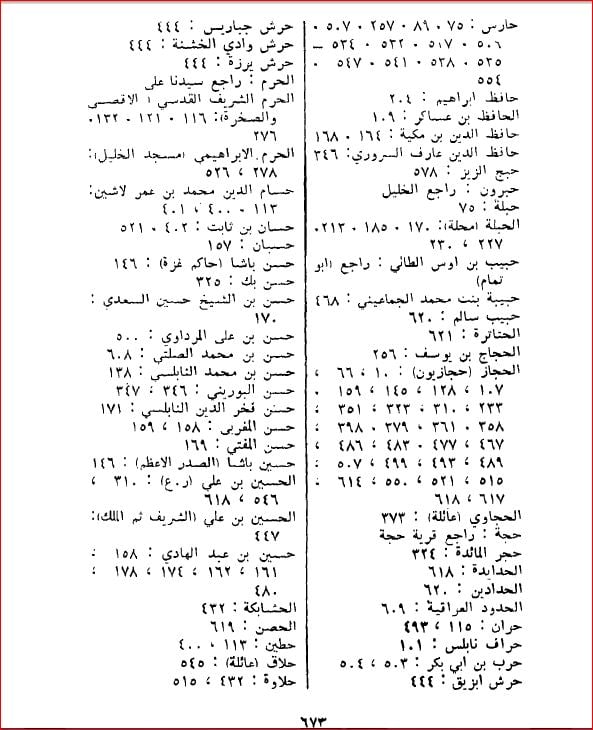 حارس : ٧٥ ٠ ٨٩ ٠ ٢٥٧ ٠ ٥٠٧ ٠
٥٠٦ ٠ ٥١٧ ٠ ٥٣٢ ٠ ٥٣٤ –
٥٣٥ ٠ ٥٣٨ ٠ ٥٤١ ٠ ٥٤٧ ٠
٥٥٤
حافظ ابراهيم : ٢٠٤
الحافظ بن عساكر : ١٠٩
حافظ الدين بن مكية : ١٦٤ ٠ ١٦٨
حافظ الدين عارف السروري: ٣٤٦
حبج الزيز : ٥٧٨
حبرون : راجع الخليل
حبلة : ٧٥
الحبلة (محلة): ١٧٠ ٠ ١٨٥ ٠ ٢١٣٠
٢٢٧ ، ٢٣٠
حبيب بن اوس الطائي : راجع (ابو
تمام)
حبيبة بنت محمد الجماعيني : ٤٦٨
حبيب سالم : ٦٢٠
الحتاترة : ٦٢١
الحجاج بن يوسف : ٢٥٦
الحجاز (حجازيون) : ١٠ ، ٦٦ ،
١٠٧ ، ١٢٨ ، ١٤٥ ، ١٥٩ ٠
٢٣٣ ، ٣١٠ ، ٣٢٣ ، ٣٥١ ،
٣٥٨ ٠ ٣٦١ ٠ ٣٧٩ ٠ ٣٩٨ ،
٤٦٧ ، ٤٧٧ ٠ ٤٨٣ ، ٤٨٦ ،
٤٨٩ ، ٤٩٣ ، ٤٩٩ ، ٥٠٧ ،
٥١٥ ، ٥٢١ ، ٥٥٠ ، ٦١٤ ،
٦١٧ ، ٦١٨
الحجاوي (عائلة) : ٣٧٣
حجة : راجع قرية حجة
حجر المائدة : ٣٢٤
الحدايدة : ٦١٨
الحدادين : ٦٢٠
الحدود العراقية : ٦٠٩
حران : ١١٥ ، ٤٩٣
حراف نابلس : ١٠١
حرب بن ابي بكر : ٥٠٣ ، ٥٠٤
حرش ابزيق : ٤٤٤
حرش جباريس : ٤٤٤
حرش وادي الخشنة : ٤٤٤
حرش برزة : ٤٤٤
الحرم : راجع سيدنا على
الحرم الشريف القدسي (الاقصى
والصخرة): ١١٦ ٠ ١٢١ ٠ ١٣٢٠
٢٧٦
الحرم الابراهيمي (مسجد الخليل):
٢٧٨ ، ٥٢٦
حسام الدين محمد بن عمر لاشين:
١١٣ ٠ ٤٠٠ ، ٤٠١
حسان بن ثابت : ٤٠٢ ٠ ٥٢١
حسبان : ١٥٧
حسن باشا (حاكم غزة) : ١٤٦
حسن بك : ٣٢٥
حسن بن الشيخ حسين السعدي :
١٧٠
حسن بن على المرداوي : ٥٠٠
حسن بن محمد الصلتي : ٦٠٨
حسن بن محمد النابلسي : ١٣٨
حسن البوريني : ٣٤٦ ، ٣٤٧
حسن فخر الدين النابلسي : ١٧١
حسن المغربى : ١٥٨ ، ١٥٩
حسن المفتي : ١٦٩
حسين باشا (الصدر الاعظم) : ١٤٦
الحسين بن علي (ر.ع) : ٣١٠ ،
٥٤٦ ، ٦١٨
الحسين بن علي (الشريف ثم الملك):
٤٤٧
حسين بن عبد الهادي : ١٥٨ ،
١٦١ ، ١٦٢ ، ١٧٤ ، ١٧٨ ،
٤٨٠
الحشابكة : ٤٣٢
الحصن : ٦١٩
حطين : ١١٣ ، ٤٠٠
حلاق (عائلة) : ٥٤٥
حلاوة : ٤٣٢ ، ٥١٥
٦٧٣